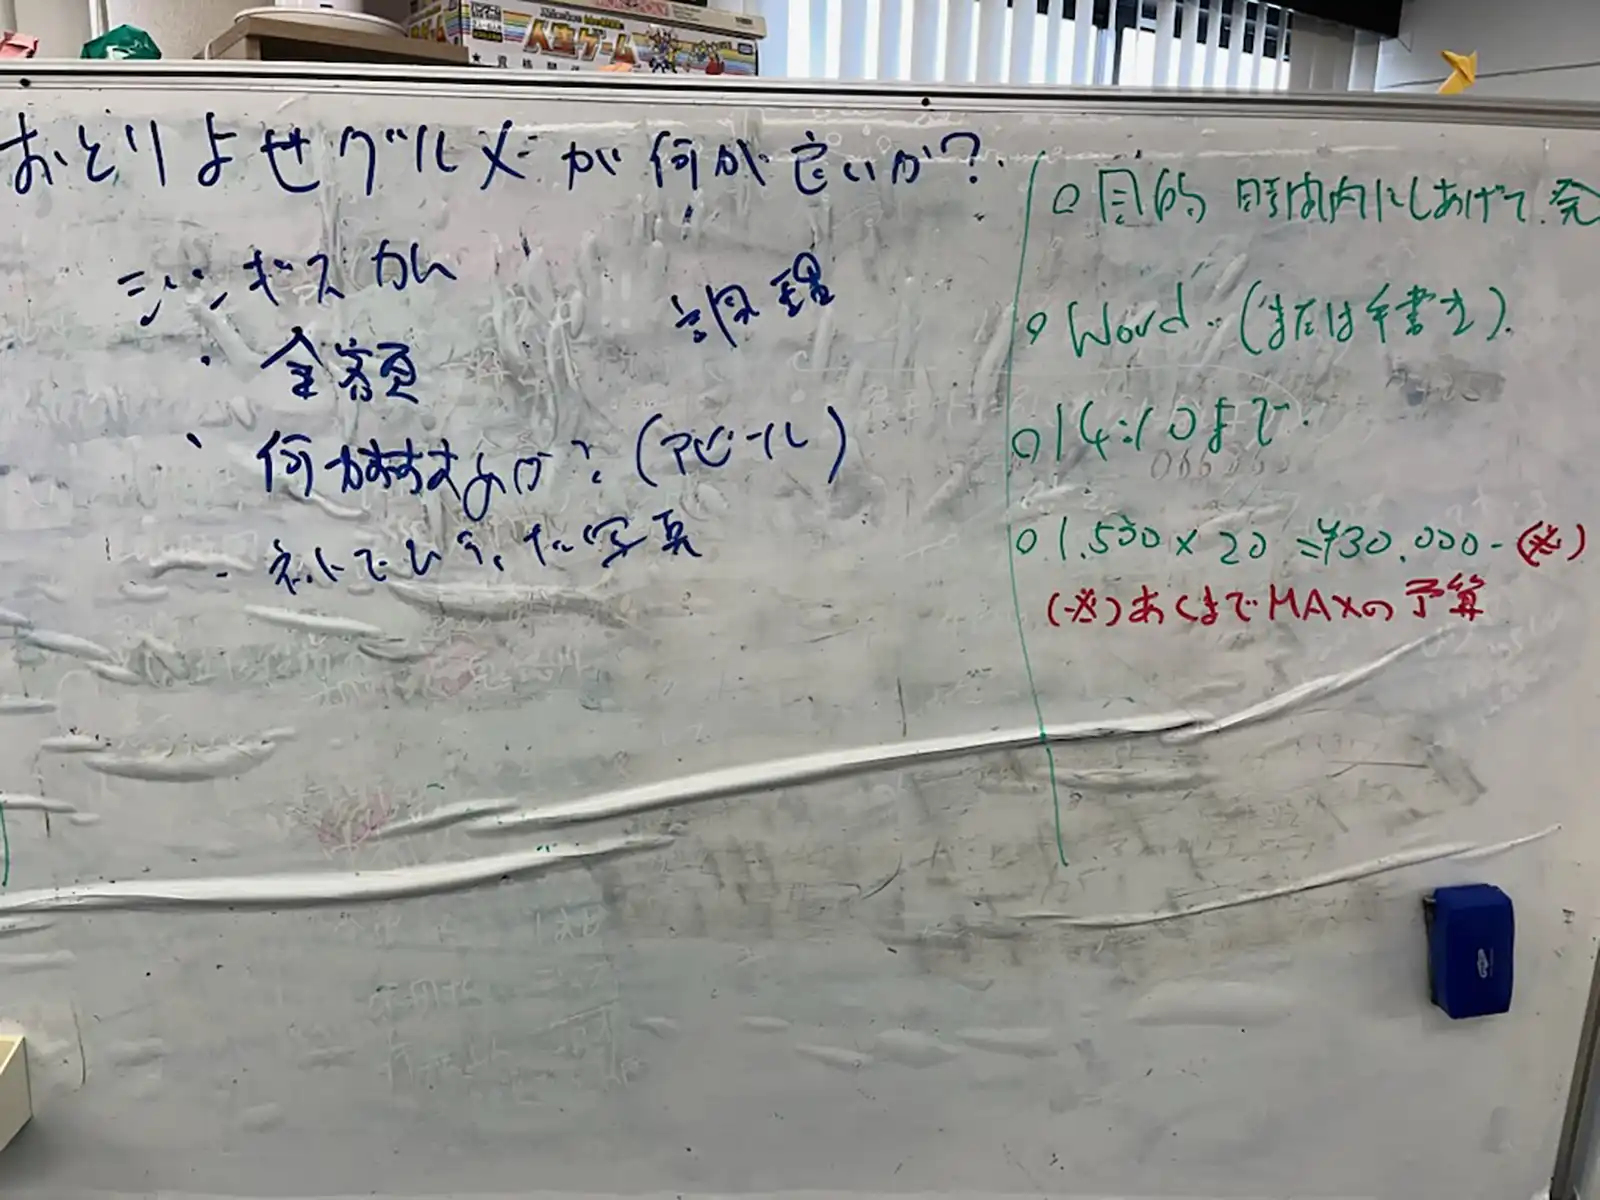 人生ゲーム
おとりよせグルメが何が良いか?
ジンギスカン
調理
・金額
・何がおすすめか?(アピール)
・ネットでひろった写真
○目的 時間内にしあげて、発
○Word.(または手書き).
○14:10まで.
○1.500×20=¥30.000-(※)
(※)あくまでMAXの予算